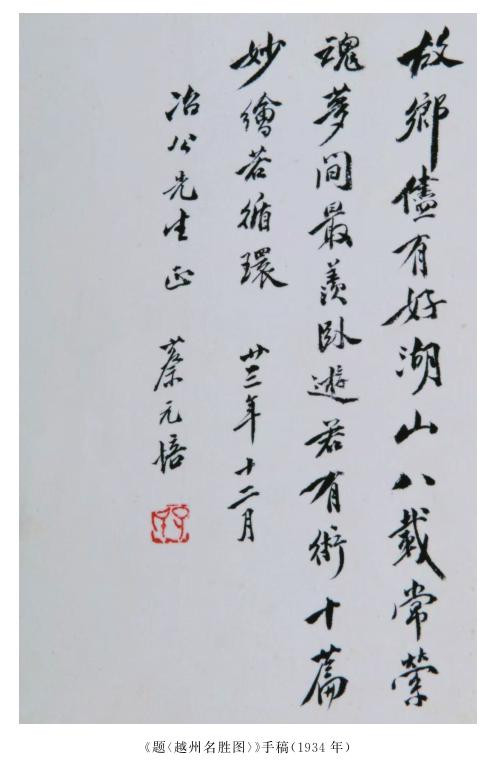 故鄉儘有好湖山八載常縈
魂夢間最羨卧遊君有術十篇
妙繪若循環 廿三年十二月
冶公先生正 蔡元培
《题〈越州名胜图〉》手稿(1934年)